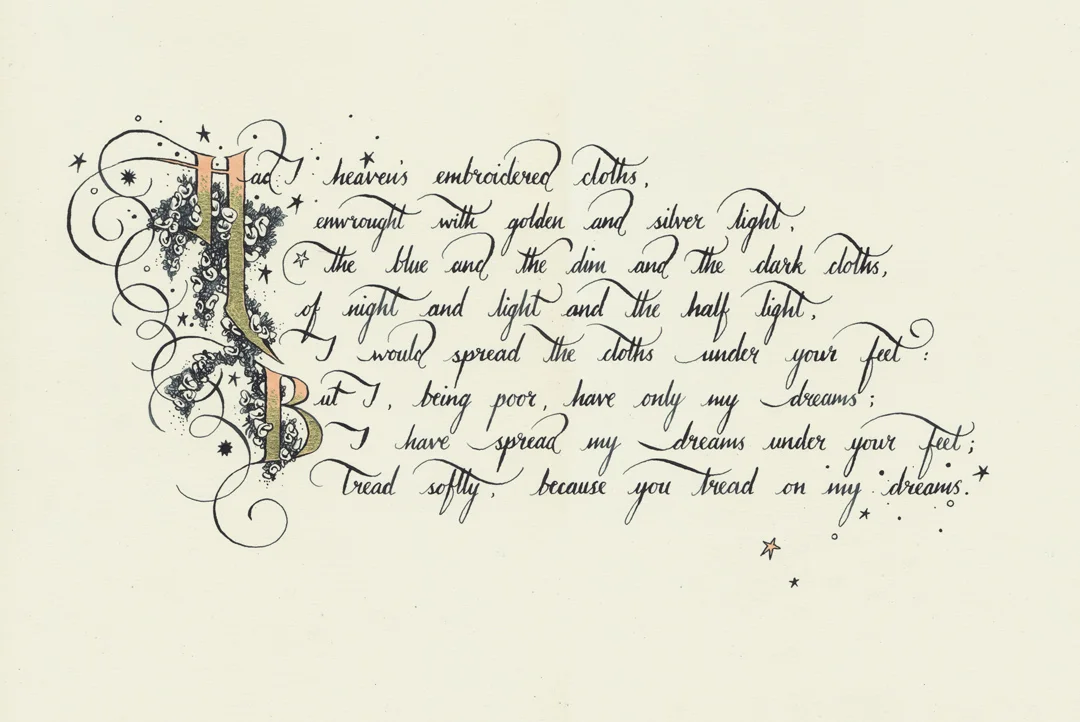 Had I heaven's embroidered cloths,
enwrought with golden and silver light,
the blue and the dim and the dark cloths,
of night and light and the half light,
I would spread the cloths under your feet:
But I, being poor, have only my dreams;
I have spread my dreams under your feet;
Tread softly, because you tread on my dreams.